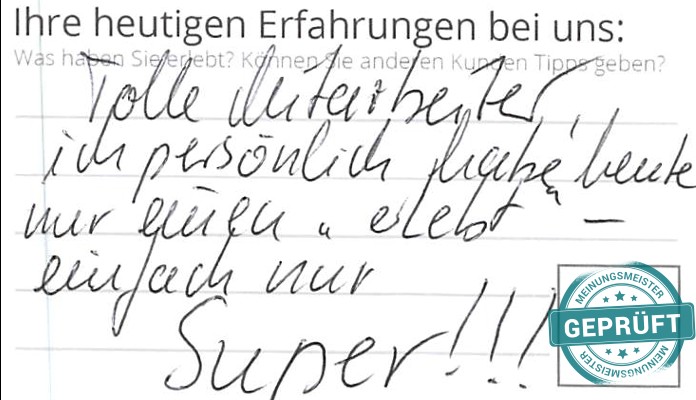 Ihre heutigen Erfahrungen bei uns:
Was haben Sie erlebt? Können Sie anderen Kunden Tipps geben?
Tolle Mitarbeiter,
ich persönlich habe heute
nur einen „erlebt" –
einfach nur
Super!!!
MEINUNGSMEISTER
GEPRÜFT
MEINUNGSMEISTER